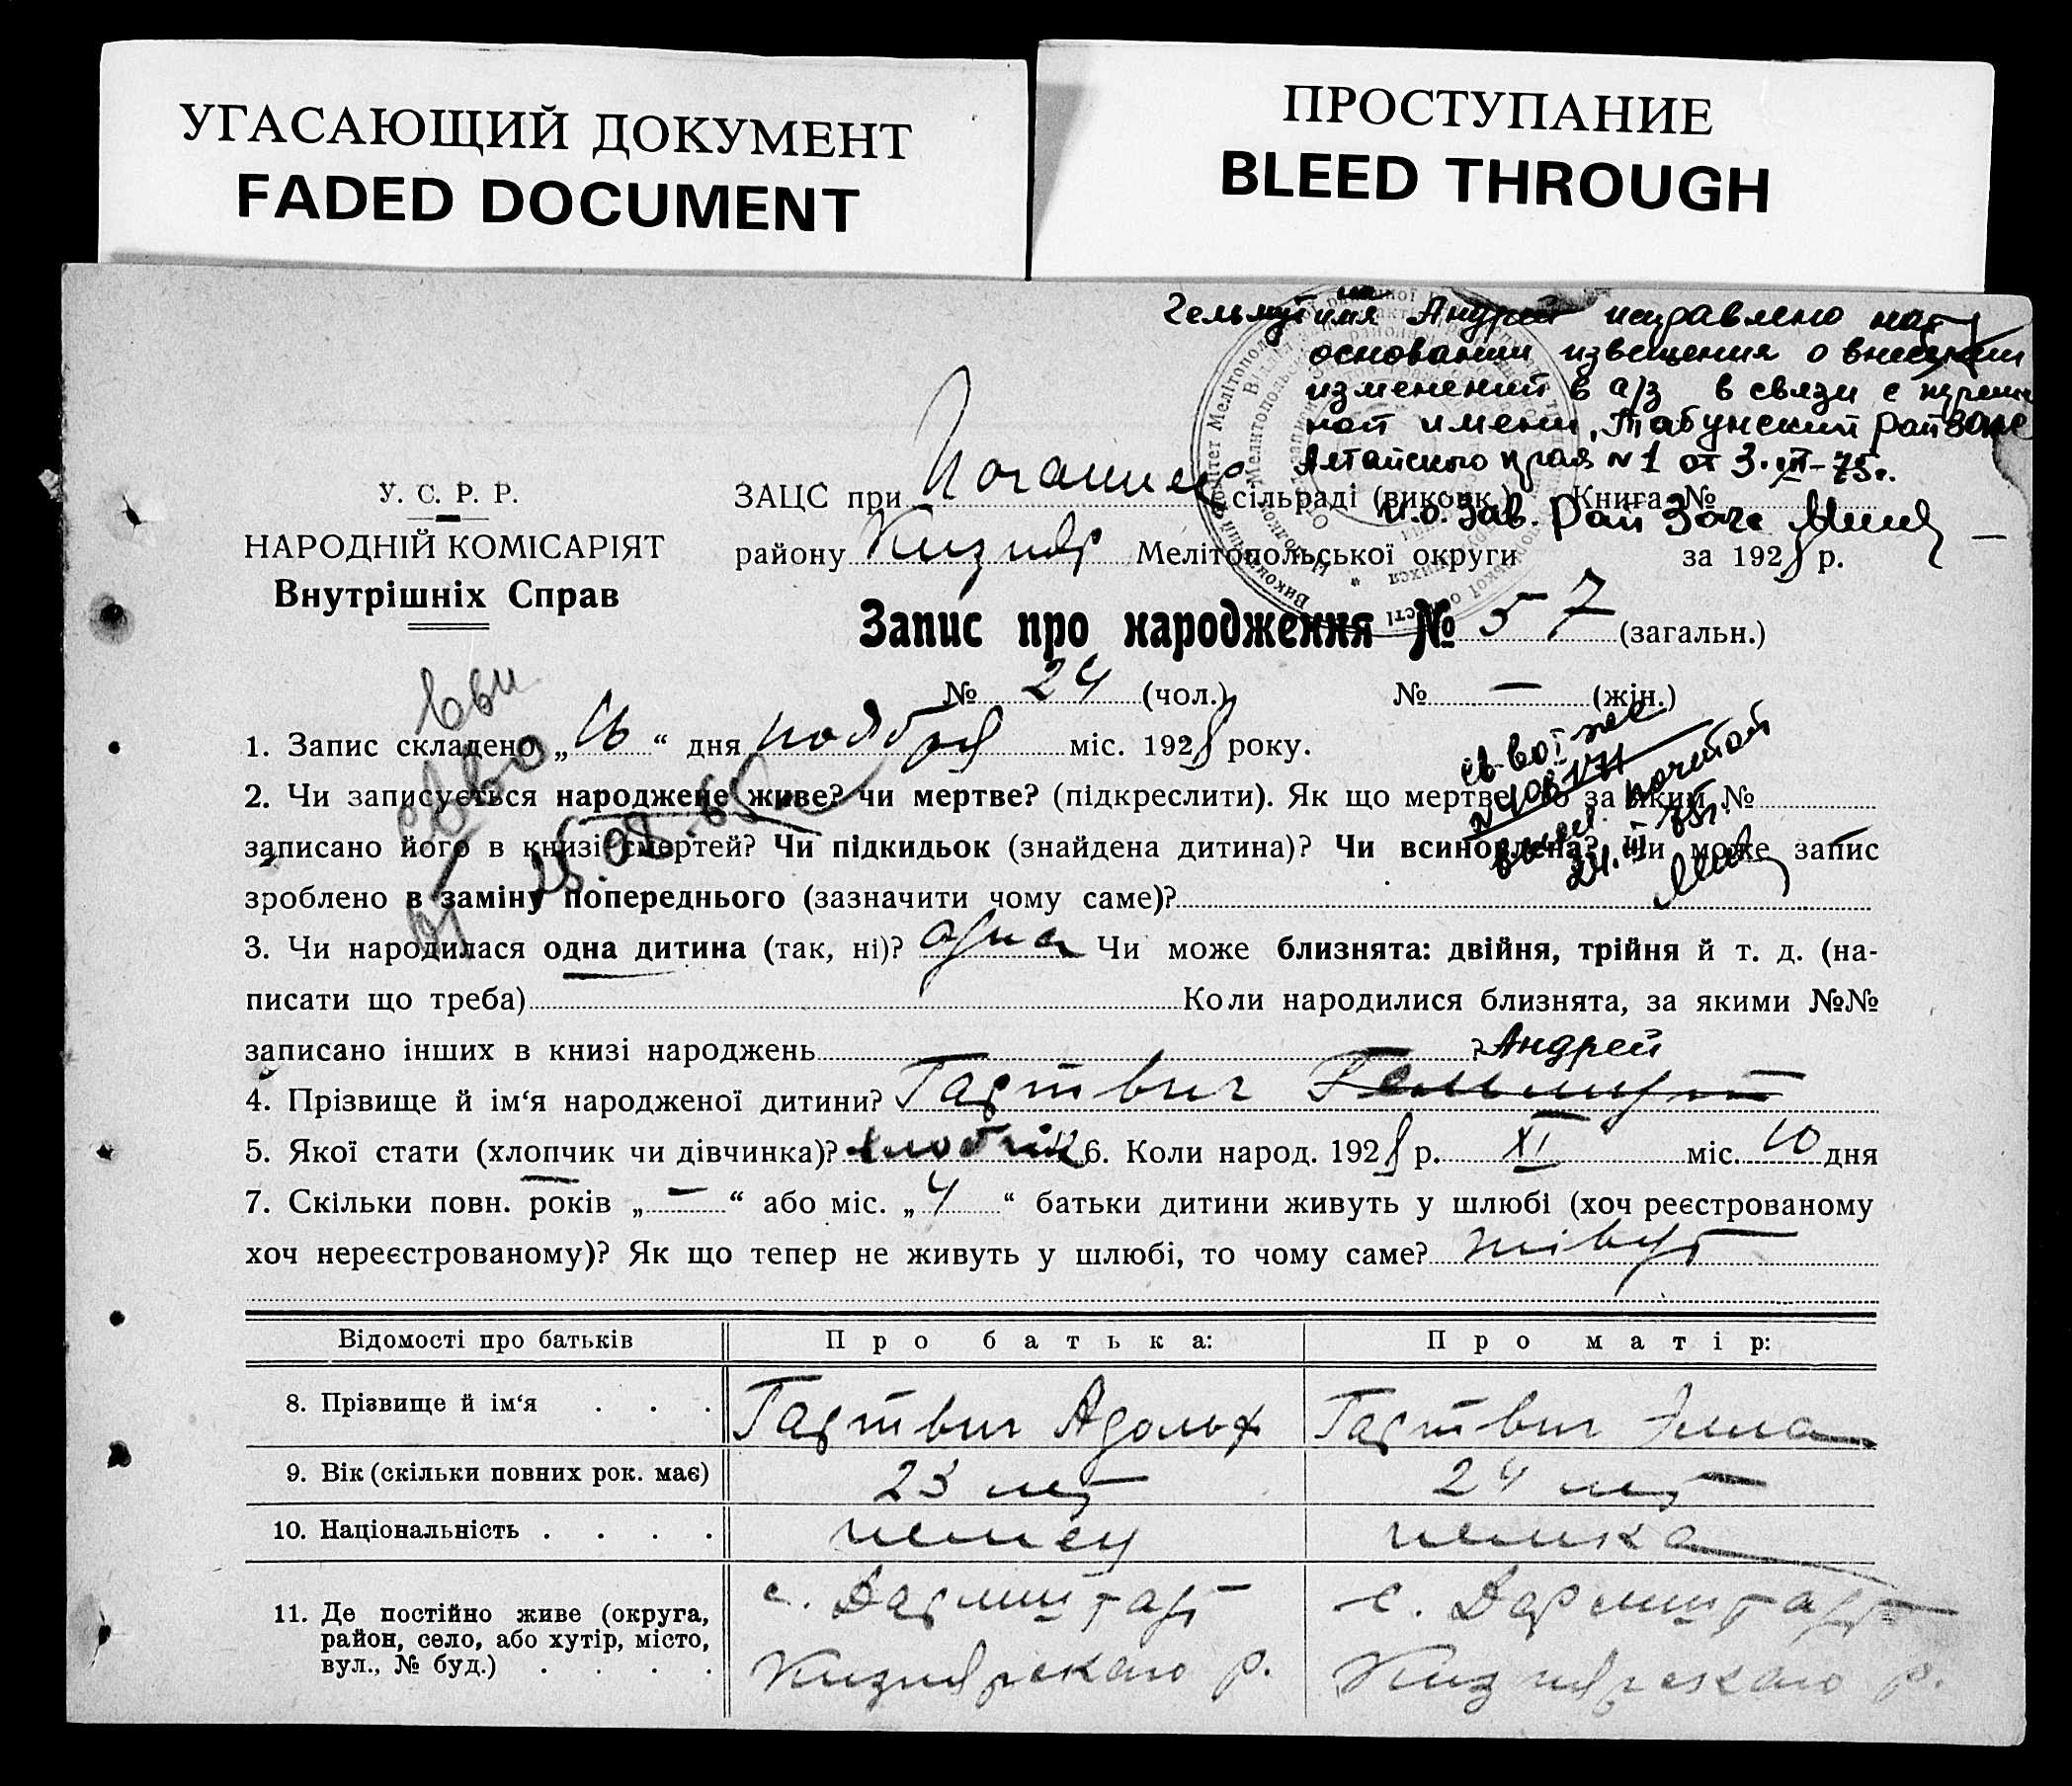 УГАСАЮЩИЙ ДОКУМЕНТ
FADED DOCUMENT
ПРОСТУПАНИЕ
BLEED THROUGH
Гельмут на имя Андрей исправлено на
основании извещения о внесении
изменений в а/з в связи с переме-
ной имени, Табунский райзагс
Алтайского края № 1 от 3.III-75г.
И.о. Зав. Рай Загс
У. С. Р. Р.
НАРОДНІЙ КОМІСАРІЯТ
Внутрішніх Справ
ЗАЦС при сільраді (виконк.) Книга №
району Кизияр Мелітопольської округи за 1928 р.
Запис про народження № 57 (загальн.)
№ 24 (чол.) № — (жін.)
1. Запис складено „16“ дня ноября міс. 1928 року.
2. Чи записується народжене живе? чи мертве? (підкреслити). Як що мертве, то за яким №
записано його в книзі смертей? Чи підкидьок (знайдена дитина)? Чи всиновлена? Чи може запис
зроблено в заміну попереднього (зазначити чому саме)?
25.08.65
24.III 75г.
3. Чи народилася одна дитина (так, ні)? одна Чи може близнята: двійня, трійня й т. д. (на-
писати що треба) Коли народилися близнята, за якими №№
записано інших в книзі народжень ?
Андрей
4. Прізвище й ім‘я народженої дитини? Гартвиг Гельмут
5. Якої стати (хлопчик чи дівчинка)? 6. Коли народ. 1928 р. XI міс. 10 дня
7. Скільки повн. років „—“ або міс. „4“ батьки дитини живуть у шлюбі (хоч реєстрованому
хоч нереєстрованому)? Як що тепер не живуть у шлюбі, то чому саме? живут
Відомості про батьків Про батька: Про матір:
8. Прізвище й ім‘я . . . Гартвиг Адольф Гартвиг Элла
9. Вік (скільки повних рок. має) 23 лет 24 лет
10. Національність . . . . немец немка
11. Де постійно живе (округа,
район, село, або хутір, місто,
вул., № буд.) . . . .
с. Дармштадт
Кизиярскаго р.
с. Дармштадт
Кизиярскаго р.